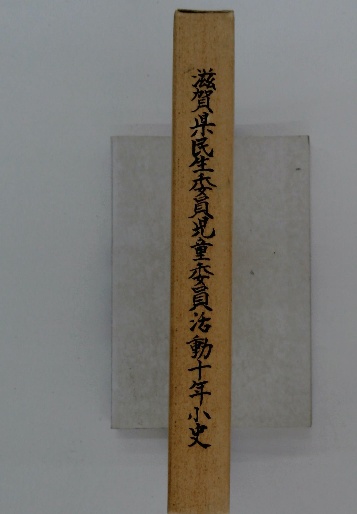 滋賀県民生委員児童委員活動十年小史